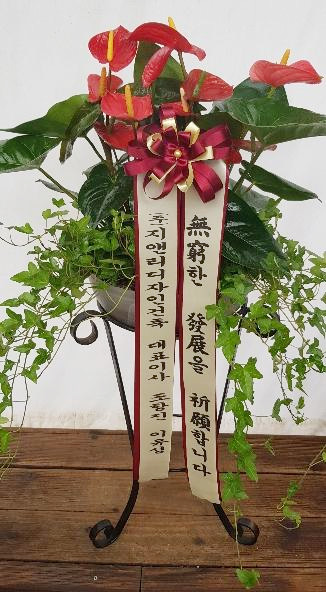 無窮한 發展을 祈願합니다
후지앤리디자인건축 대표이사 조항진 이유섭